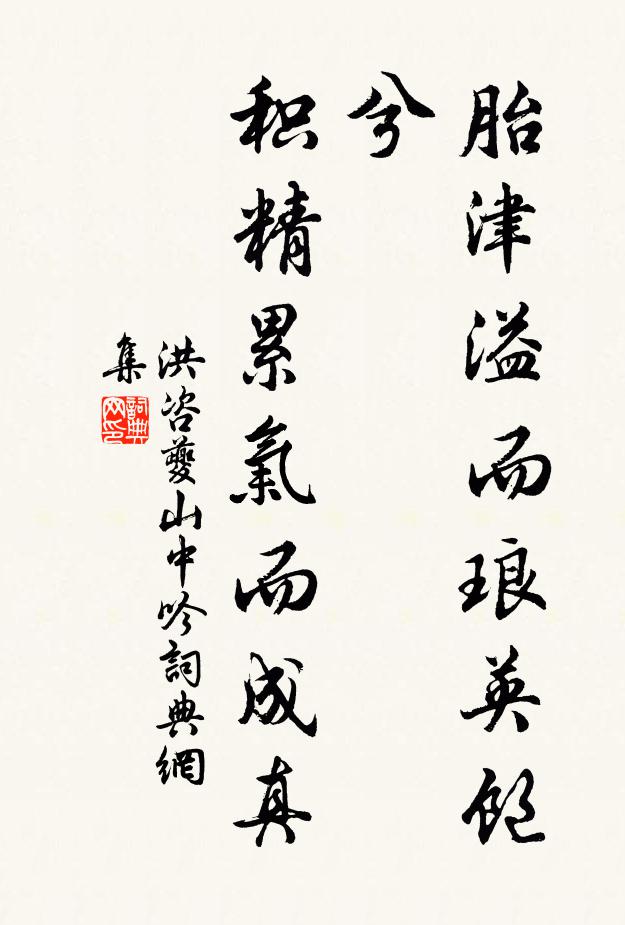 胎津溢而琅英飽
兮
积精累氣而成真
洪咨夔山中吟詞典網
集
詞典
网印